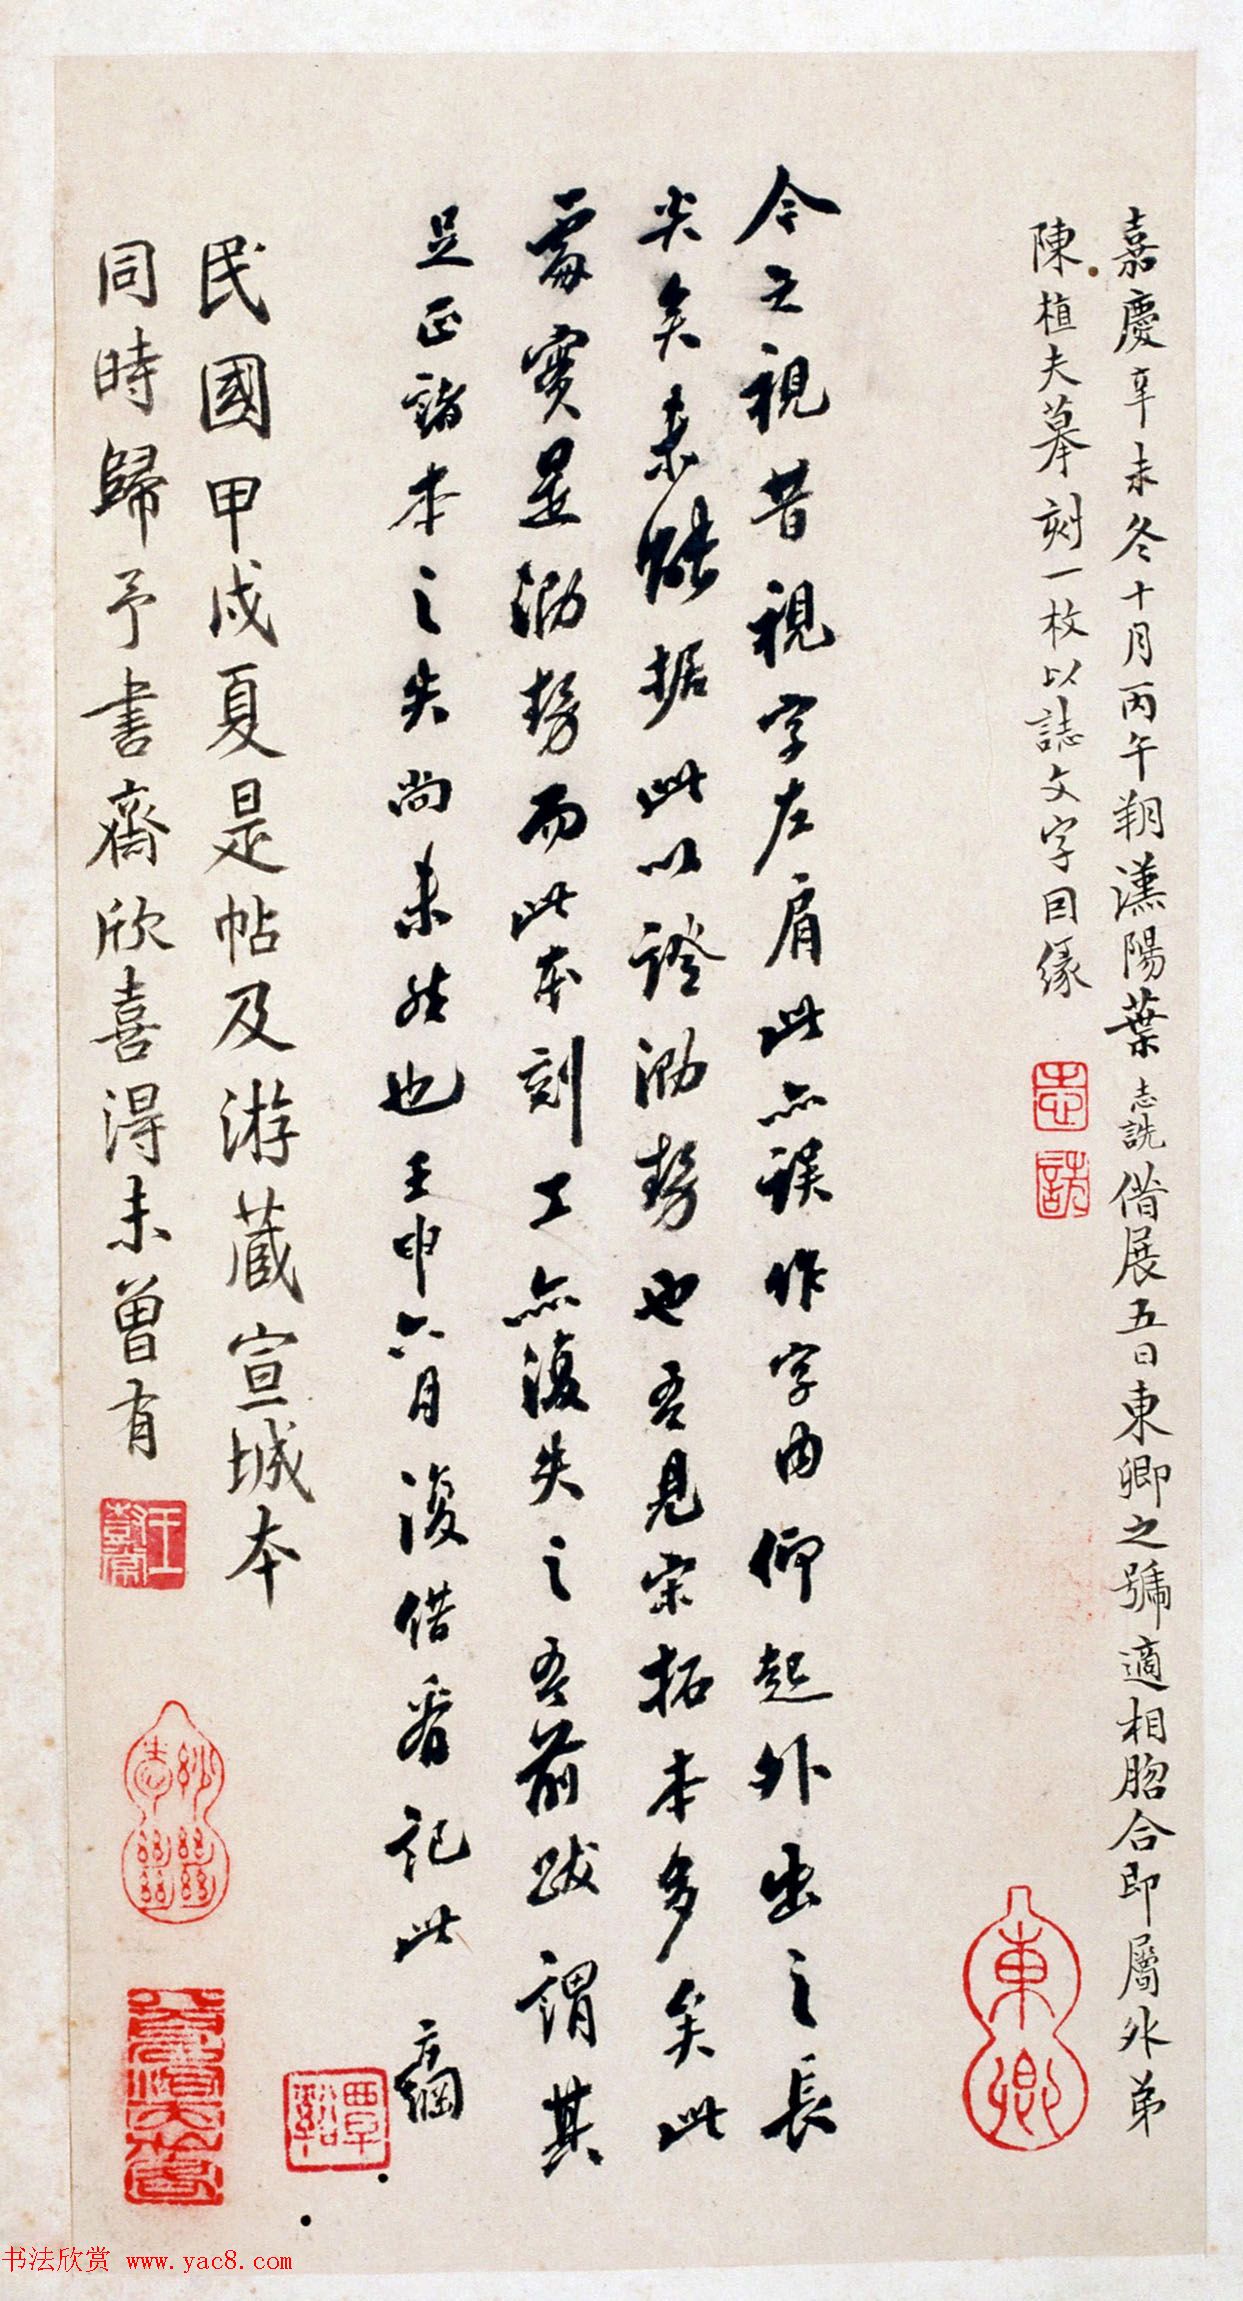 嘉慶辛未冬十月丙午朔漢陽葉志詵借展五日東卿之號適相脗合即屬外弟
陳植夫摹刻一枚以誌文字因緣
志詵
東卿
今之視昔視字左肩此亦誤作字内仰起外出之長
尖矣未能据此以證泐勢也吾見宋拓本多矣此
處實是泐勢而此本刻工亦復失之吾前跋謂其
足正諸本之失尚未然也壬申六月復借看記此 方綱
覃谿
民國甲戌夏是帖及游藏宣城本
同時歸予書齋欣喜得未曾有
书法欣赏 www.yac8.com